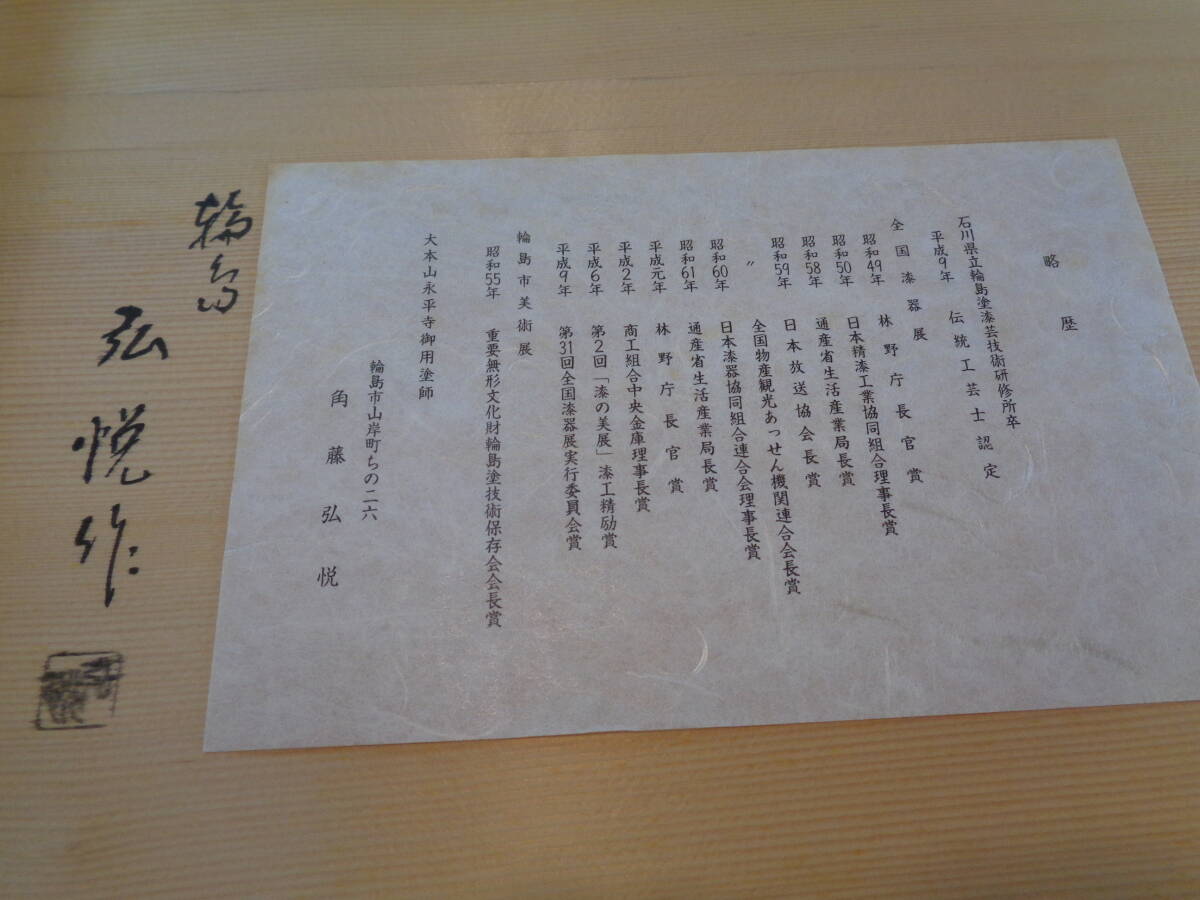 略歴
石川県立輪島塗漆芸技術研修所卒
平成9年 伝統工芸士認定
全国漆器展
昭和49年 林野庁長官賞
昭和50年 日本精漆工業協同組合理事長賞
昭和58年 通産省生活産業局長賞
昭和59年 日本放送協会長賞
〃 全国物産観光あっせん機関連合会長賞
昭和60年 日本漆器協同組合連合会理事長賞
昭和61年 通産省生活産業局長賞
平成元年 林野庁長官賞
平成2年 商工組合中央金庫理事長賞
平成6年 第2回「漆の美展」漆工精励賞
平成9年 第31回全国漆器展実行委員会賞
輪島市美術展
昭和55年 重要無形文化財輪島塗技術保存会会長賞
大本山永平寺御用塗師
輪島市山岸町ちの二六
角藤弘悦
輪島
弘悦作